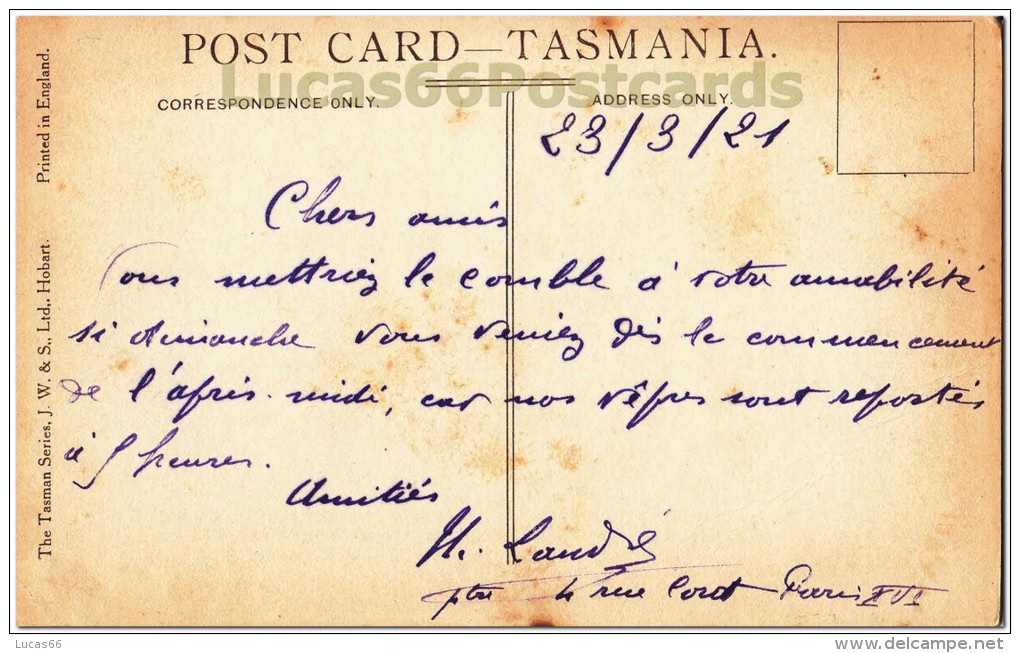 POST CARD—TASMANIA.
Lucas66Postcards
CORRESPONDENCE ONLY.
ADDRESS ONLY.
23/3/21
Chers amis
Vous mettriez le comble à votre amabilité
si dimanche vous veniez dès le commencement
de l'après-midi, car nos vêpres sont reportés
à 5 heures.
Amitiés
H. Landré
ptre 4 rue Corot Paris XVI
The Tasman Series, J. W. & S., Ltd., Hobart. Printed in England.
Lucas66
www.delcampe.net